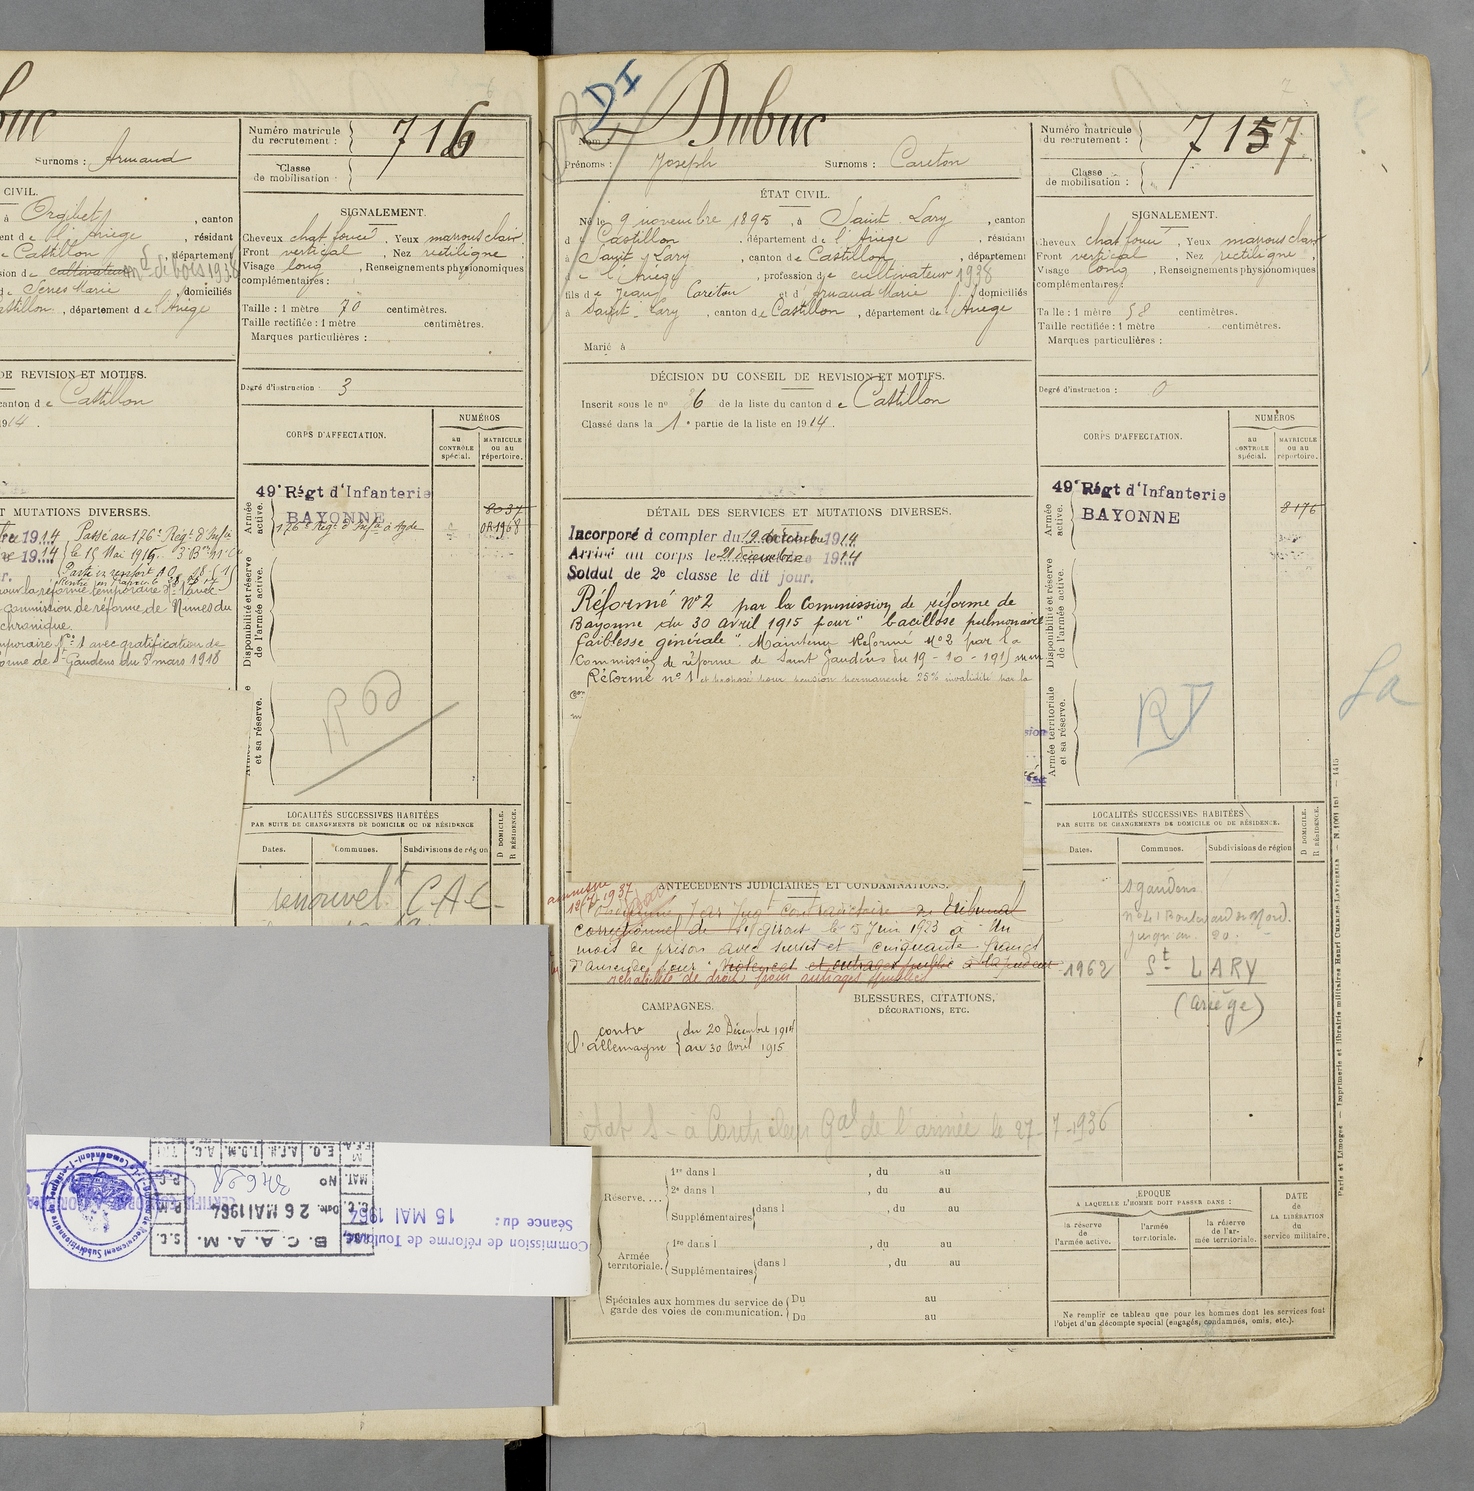 buc
Surnoms : Armand
Numéro matricule
du recrutement :
716
Classe
de mobilisation :
CIVIL.
à Orgibet, canton
ent de l'Ariège, résidant
e Castillon, département
ion de cultivateur md de bois 1938
de Senes Marie domiciliés
astillon, département de l'Ariège
SIGNALEMENT.
Cheveux chat. foncé, Yeux marrons clair.
Front vertical, Nez rectiligne
Visage long, Renseignements physionomiques
complémentaires :
Taille : 1 mètre 70 centimètres.
Taille rectifiée : 1 mètre centimètres.
Marques particulières :
DE REVISION ET MOTIFS.
canton de Castillon
1914.
Degré d'instruction : 3
CORPS D'AFFECTATION.
NUMÉROS
au
CONTRÔLE
spécial.
MATRICULE
ou au
répertoire.
49e Régt d'Infanterie
BAYONNE
126e Régt d'Infie à Agde
Armée
active.
Disponibilité et réserve
de l'armée active.
et sa réserve.
T MUTATIONS DIVERSES.
1914 Passé au 126e Régt d'Infie
1914 le 15 Mai 1915.
commission de réforme de Nimes du
chronique.
mporaire No 1 avec gratification de
orme de St Gaudens du 8 mars 1918
LOCALITÉS SUCCESSIVES HABITÉES
PAR SUITE DE CHANGEMENTS DE DOMICILE OU DE RÉSIDENCE
Dates.
Communes.
Subdivisions de région
D DOMICILE.
R RÉSIDENCE.
renouvelt C.A.C.
Commission de réforme de Toulouse
Séance du : 15 MAI 1964
B.C.A.A.M.
Date. 26 MAI 1964
No
S.C.
P.M.
P.C.
MAT.
E.O.
I.D.M.
A.C.
DI
Nom : Dubuc
Prénoms : Joseph Surnoms : Careton
Numéro matricule
du recrutement :
7157
Classe
de mobilisation :
ÉTAT CIVIL.
Né le 9 novembre 1895, à Saint-Lary, canton
de Castillon, département de l'Ariège, résidant
à Saint-Lary, canton de Castillon, département
de l'Ariège, profession de cultivateur 1938
fils de Jean Careton et d'Armaud Marie domiciliés
à Saint-Lary, canton de Castillon, département de l'Ariège
Marié à
SIGNALEMENT.
Cheveux chat. foncé, Yeux marrons clair
Front vertical, Nez rectiligne
Visage long, Renseignements physionomiques
complémentaires :
Taille : 1 mètre 58 centimètres.
Taille rectifiée : 1 mètre centimètres.
Marques particulières :
DÉCISION DU CONSEIL DE REVISION ET MOTIFS.
Inscrit sous le no 26 de la liste du canton de Castillon
Classé dans la 1e partie de la liste en 1914.
Degré d'instruction : 0
CORPS D'AFFECTATION.
NUMÉROS
au
CONTRÔLE
spécial.
MATRICULE
ou au
répertoire.
49e Régt d'Infanterie
BAYONNE
8176
Armée
active.
Disponibilité et réserve
de l'armée active.
Armée territoriale
et sa réserve.
RT
La
DÉTAIL DES SERVICES ET MUTATIONS DIVERSES.
Incorporé à compter du 19 décembre 1914
Arrivé au corps le 21 décembre 1914
Soldat de 2e classe le dit jour.
Réformé no 2 par la Commission de réforme de
Bayonne du 30 avril 1915 pour "bacillose pulmonaire
faiblesse générale". Maintenu Réformé No 2 par la
Commission de réforme de Saint Gaudens du 19-10-1915
Réformé no 1 et proposé pour pension permanente 25% invalidité par la
ANTÉCÉDENTS JUDICIAIRES ET CONDAMNATIONS.
1937
Jug contradictoire du tribunal
correctionnel de St Girons le 5 Juin 1923 à un
mois de prison avec sursis et cinquante francs
d'amende pour
réhabilité de droit pour outrages
CAMPAGNES.
contre
l'allemagne
du 20 Décembre 1914
au 30 Avril 1915
BLESSURES, CITATIONS,
DÉCORATIONS, ETC.
Contrôleur Gal de l'armée le 27-7-1936
LOCALITÉS SUCCESSIVES HABITÉES
PAR SUITE DE CHANGEMENTS DE DOMICILE OU DE RÉSIDENCE.
Dates.
Communes.
Subdivisions de région
D DOMICILE.
R RÉSIDENCE.
St gaudens
1962 St LARY
(Ariège)
Réserve....
1re dans l , du au
2e dans l , du au
Supplémentaires dans l , du au
Armée
territoriale.
1re dans l , du au
Supplémentaires dans l , du au
Spéciales aux hommes du service de
garde des voies de communication.
Du au
Du au
ÉPOQUE
A LAQUELLE L'HOMME DOIT PASSER DANS :
la réserve
de
l'armée active.
l'armée
territoriale.
la réserve
de l'ar-
mée territoriale.
DATE
de la
LIBÉRATION
du
service militaire.
Ne remplir ce tableau que pour les hommes dont les services font
l'objet d'un décompte spécial (engagés, condamnés, omis, etc.).
Paris et Limoges — Imprimerie et librairie militaires Henri CHARLES-LAVAUZELLE